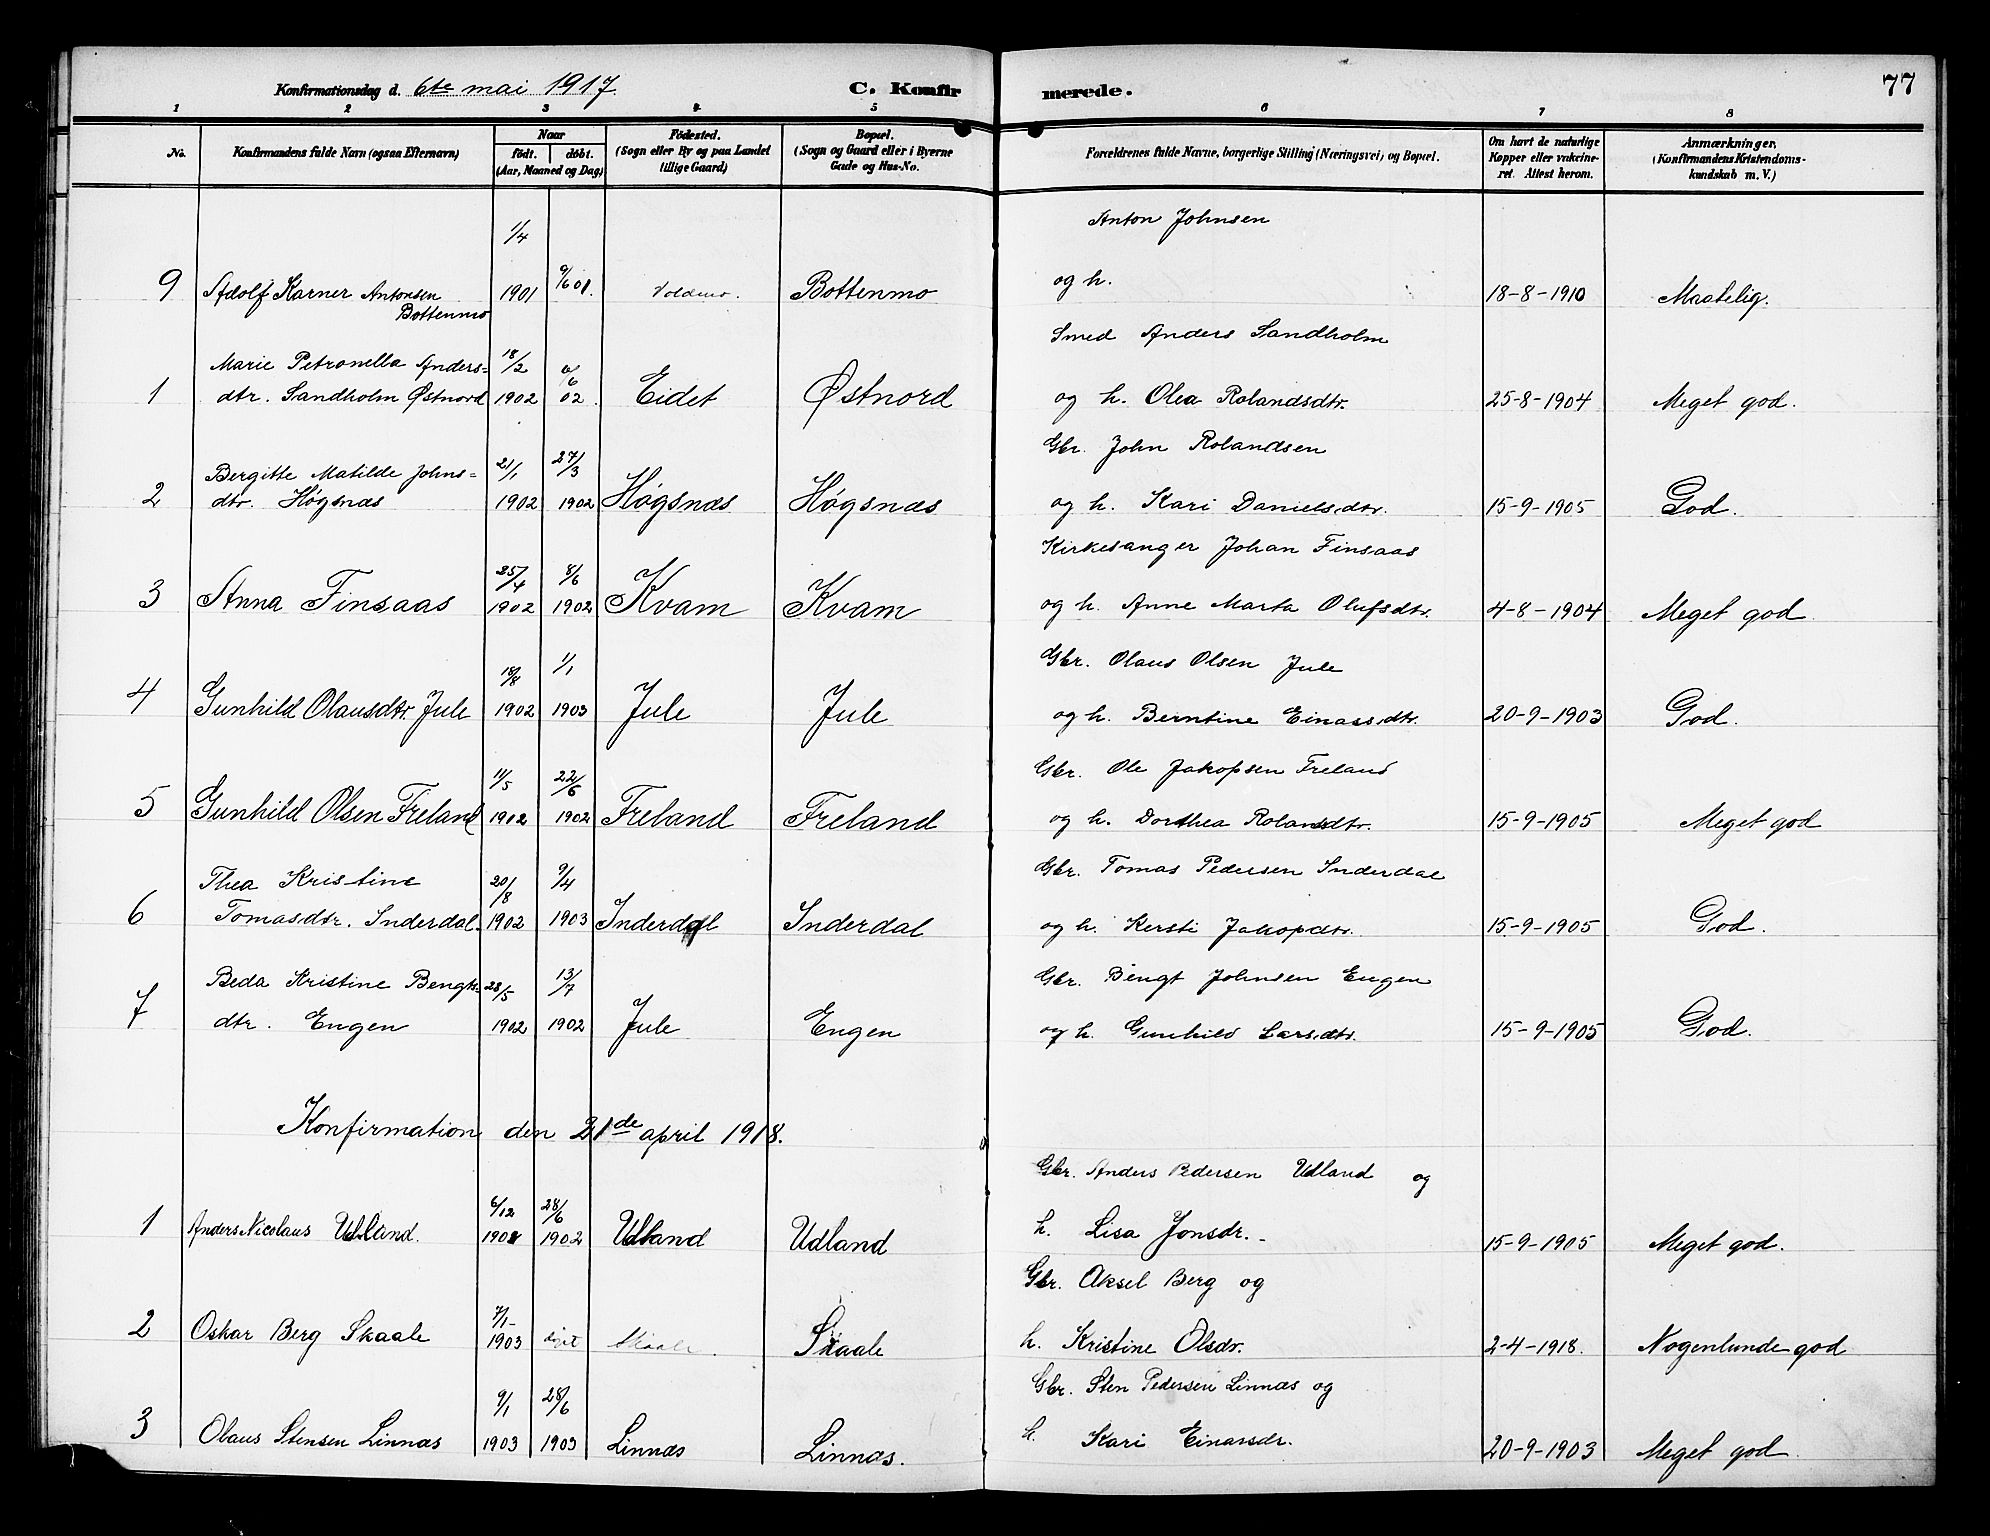 77
Konfirmationsdag d. 6te mai 1917. C. Konfirmerede.
1 2 3 4 5 6 7 8
No. Konfirmandens fulde Navn (ogsaa Efternavn) Naar født. døbt. (Aar, Maaned og Dag) Fødested. (Sogn eller By og paa Landet tillige Gaard) Bopæl. (Sogn og Gaard eller i Byerne Gade og Hus-No. Forældrenes fulde Navne, borgerlige Stilling (Næringsvei) og Bopæl. Om havt de naturlige Kopper eller vakcineret. Attest herom. Anmærkninger, (Konfirmandens Kristendomskundskab m. V.)
1/4 Anton Johnsen
9 Adolf Karner Antonsen 1901 9/6 01. Bottenmo og h. 18-8-1910 Maatelig.
Bottenmo
Marie Petronella Anders- 18/2 Smed Anders Sandholm
1 dtr. Sandholm Østnord 1902 02. Eidet Østnord og h. Olea Rolandsdtr. 25-8-1904 Meget god.
Bergitte Matilde Johns- 21/1 27/3 Gbr. John Rolandsen
2 dtr. Høgsnæs 1902 1902 Høgsnæs Høgsnæs og h. Kari Danielsdtr. 15-9-1905 God.
25/4 8/6 Kirkesanger Johan Finsaas
3 Anna Finsaas 1902 1902 Kvam Kvam og h. Anne Marta Olufsdtr. 4-8-1904 Meget god
18/8 1/1 Gbr. Olaus Olsen Jule
4 Gunhild Olausdtr. Jule 1902 1903 Jule Jule og h. Berntine Einarsdtr. 20-9-1903 God.
11/5 22/6 Gbr. Ole Jakopsen Freland
5 Gunhild Olsen Freland 1902 1902 Freland Freland og h. Dorthea Rolandsdtr. 15-9-1905 Meget god
Thea Kristine 20/8 9/4 Gbr. Tomas Pedersen Inderdal
6 Tomasdtr. Inderdal. 1902 1903 Inderdal Inderdal og h. Kersti Jakopdtr. 15-9-1905 God.
Beda Kristine Bengts- 28/5 13/7 Gbr. Bengt Johnsen Engen
7 dtr. Engen 1902 1902 Jule Engen og h. Gunhild Larsdtr. 15-9-1905 God.
Konfirmation den 21de april 1918.
6/12 28/6 Gbr. Anders Pedersen Udland og
1 Anders Nicolaus Udland. 1902 Udland Udland h. Lisa Jonsdr. 15-9-1905 Meget god.
7/1- Gbr. Aksel Berg og
2 Oskar Berg Skaale 1903 Skaale. Skaale h. Kristine Olsdr. 2-4-1918. Nogenlunde god
9/1 28/6 Gbr. Sten Pedersen Linnæs og
3 Olaus Stensen Linnæs 1903 1903 Linnæs Linnæs. h. Kari Einarsdr. 20-9-1903 Meget god.